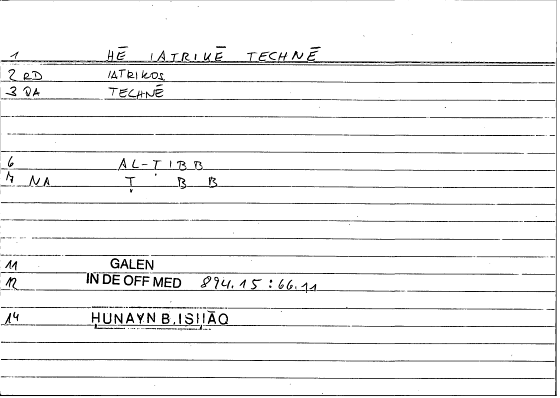 1 HĒ IATRIKĒ TECHNĒ
2 RD IATRIKOS
3 DA TECHNĒ
6 AL-ṬIBB
7 NA Ṭ B B
11 GALEN
12 IN DE OFF MED 894.15:66.11
14 HUNAYN B.ISḤĀQ